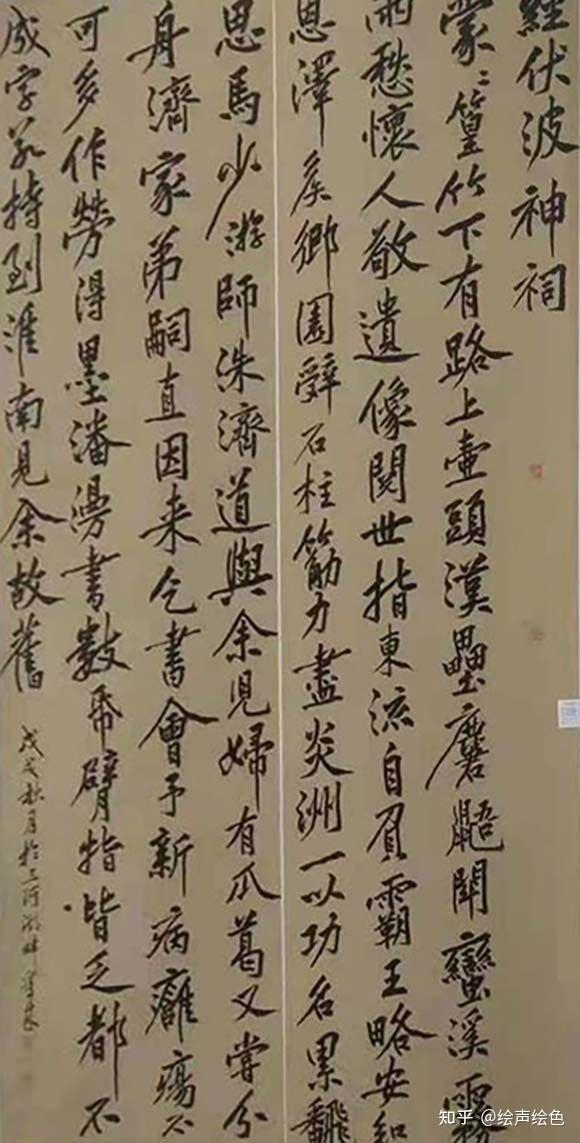 經伏波神祠
蒙〻篁竹下有路上壺頭漢壘麏鼯聞蠻溪霧
雨愁懷人敬遺像閱世指東流自負霸王略安知
恩澤矦鄉園辭石柱筋力盡炎洲一以功名累飜
思馬少游師洙濟道與余兒婦有瓜葛又嘗分
身濟家弟嗣直因来乞書會予新病癰瘍不
可多作勞得墨瀋漫書數帋臂指皆乏都不
成字若持到淮南見余故舊
戊戌秋月於三河湖畔
知乎 @绘声绘色